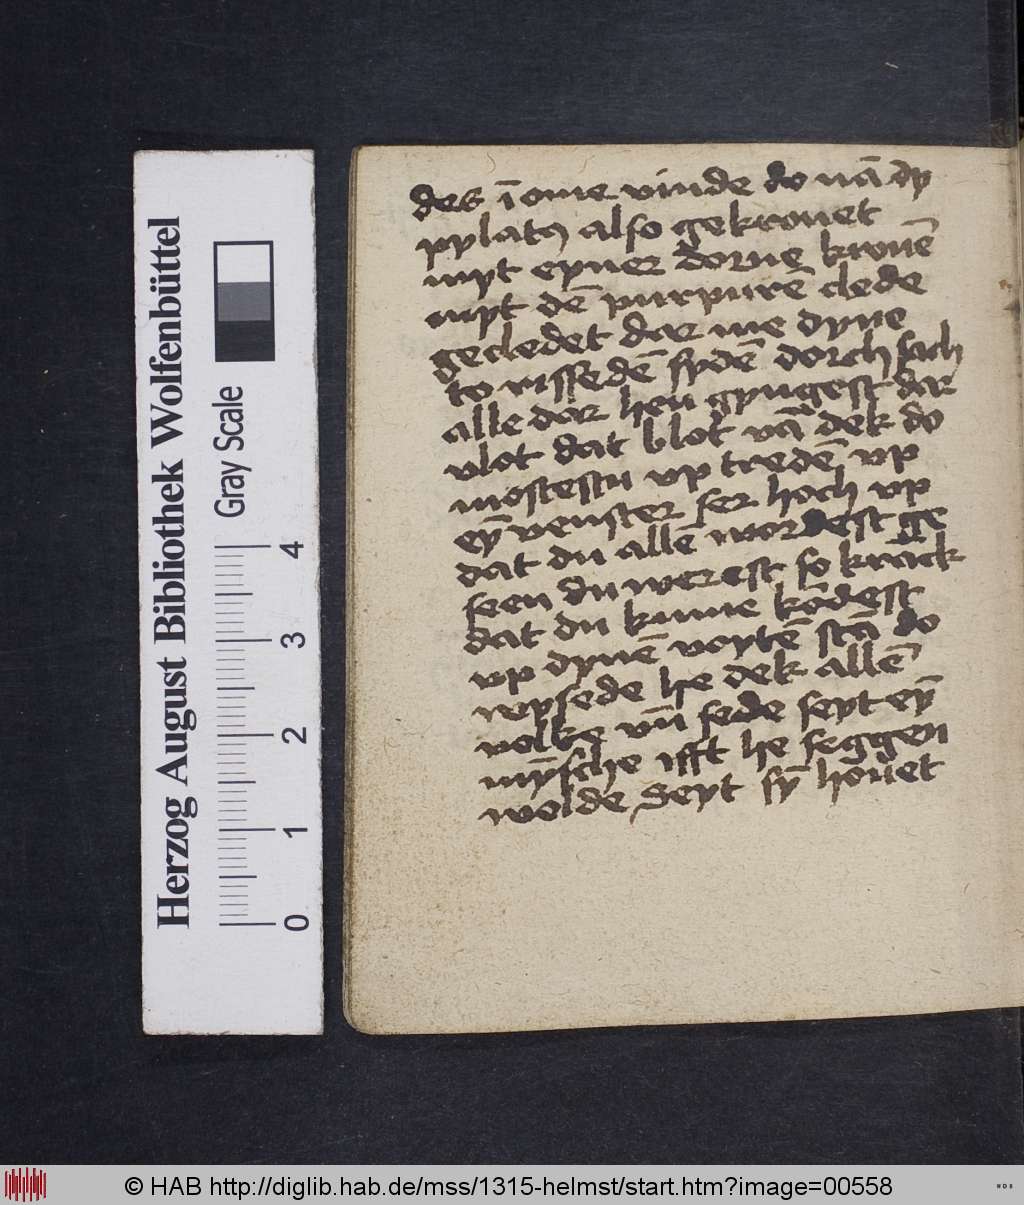 des ī ome vinde do nā dy
pylatꝯ also gekronet
myt eyner dorne kronē
myt dē purpurē clede
gecledet dar me dyne
to rissedē sydē dorch sach
alle dar hen gyngest dar
vlot dat blot vā dek do
mostestu vp tredē vp
eȳ venster ser hoch vp
dat du allē wordest ge
seen du werest so krāck
dat du kume kōdest
vp dynē voytē stā do
wysede he dek allē
volke vn̄ sede seyt eȳ
mȳsche ifft he seggen
wolde Seyt sȳ houet
Herzog August Bibliothek Wolfenbüttel
Gray Scale
0 1 2 3 4
© HAB http://diglib.hab.de/mss/1315-helmst/start.htm?image=00558